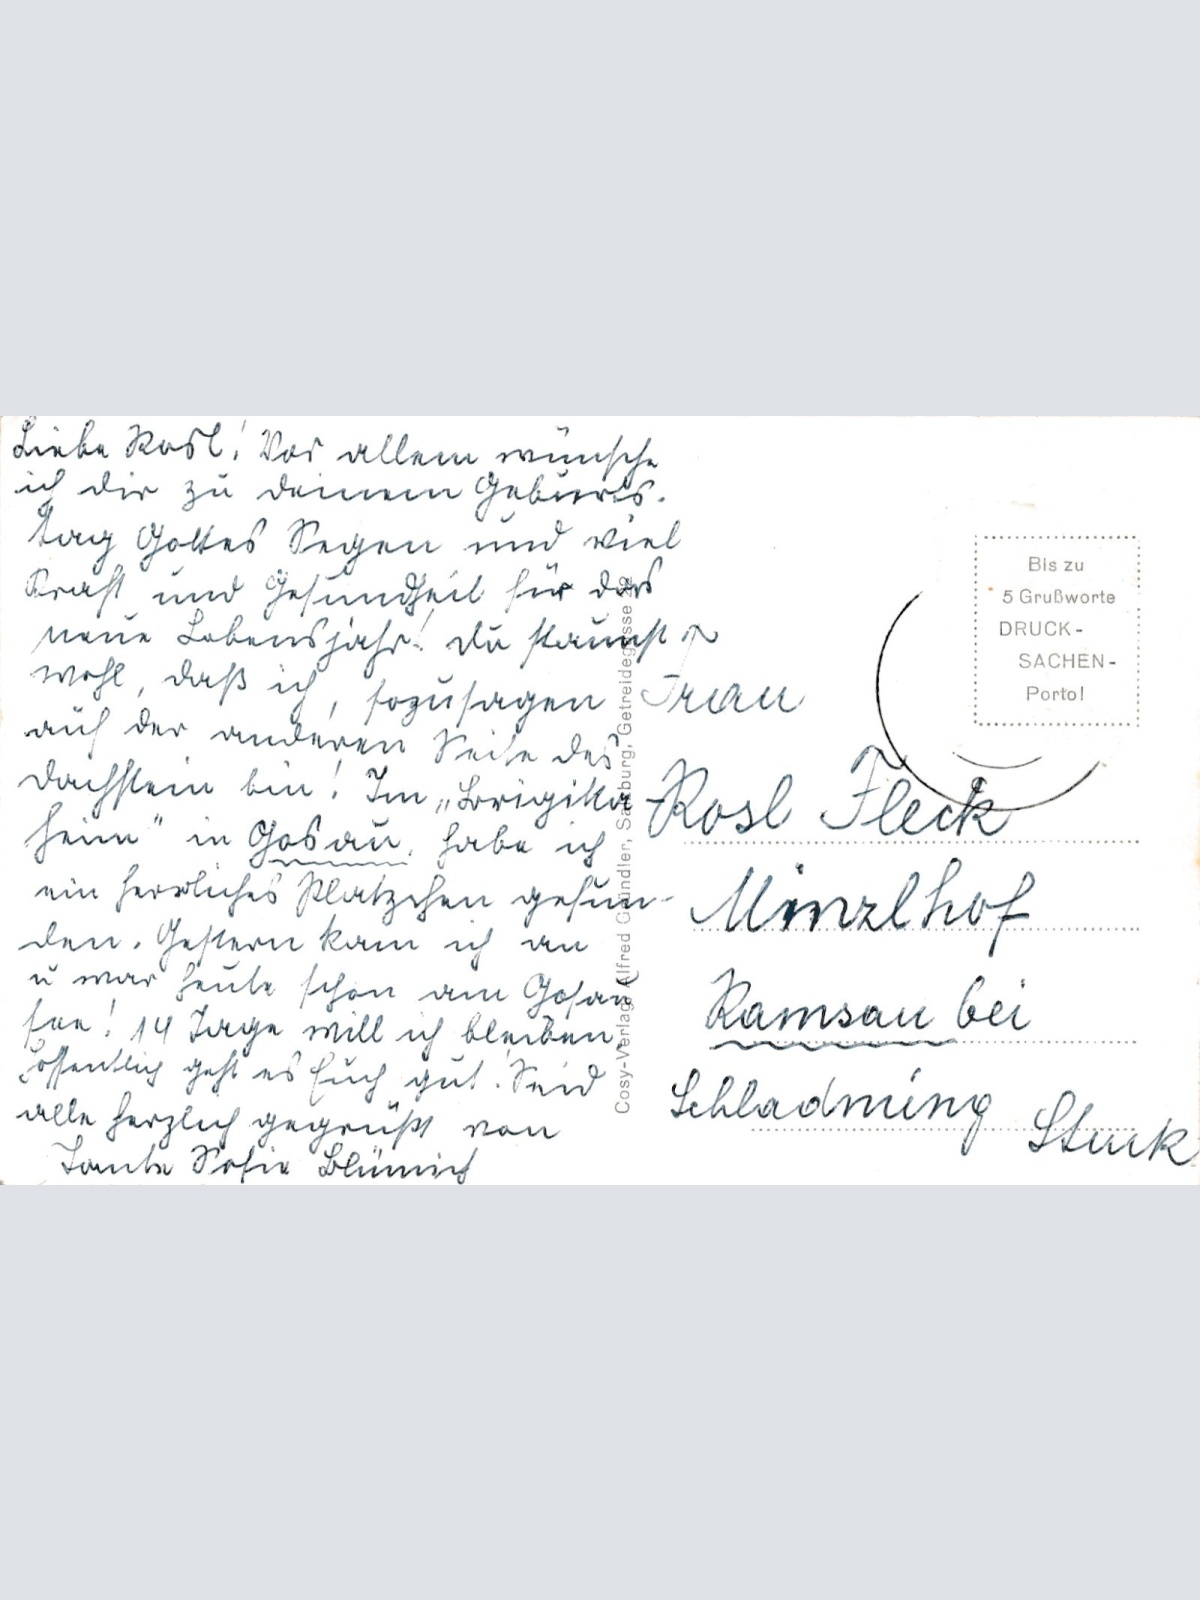 Liebe Rosl! Vor allem wünsche
ich dir zu deinem Geburts-
tag Gottes Segen und viel
Kraft und Gesundheit für das
neue Lebensjahr! Du staunst
wohl, daß ich, sozusagen
auf der anderen Seite des
Dachstein bin! Im „Brigitta-
heim" in Gosau, habe ich
ein herrliches Platzchen gefun-
den. Gestern kam ich an
u war heute schon am Gosau
see! 14 Tage will ich bleiben.
Hoffentlich geht es Euch gut. Seid
alle herzlich gegrüßt von
Tante Sofie
Cosy-Verlag Alfred Gründler, Salzburg, Getreidegasse 22
Bis zu
5 Grußworte
DRUCK-
SACHEN-
Porto!
Frau
Rosl Fleck
Minzlhof
Ramsau bei
Schladming